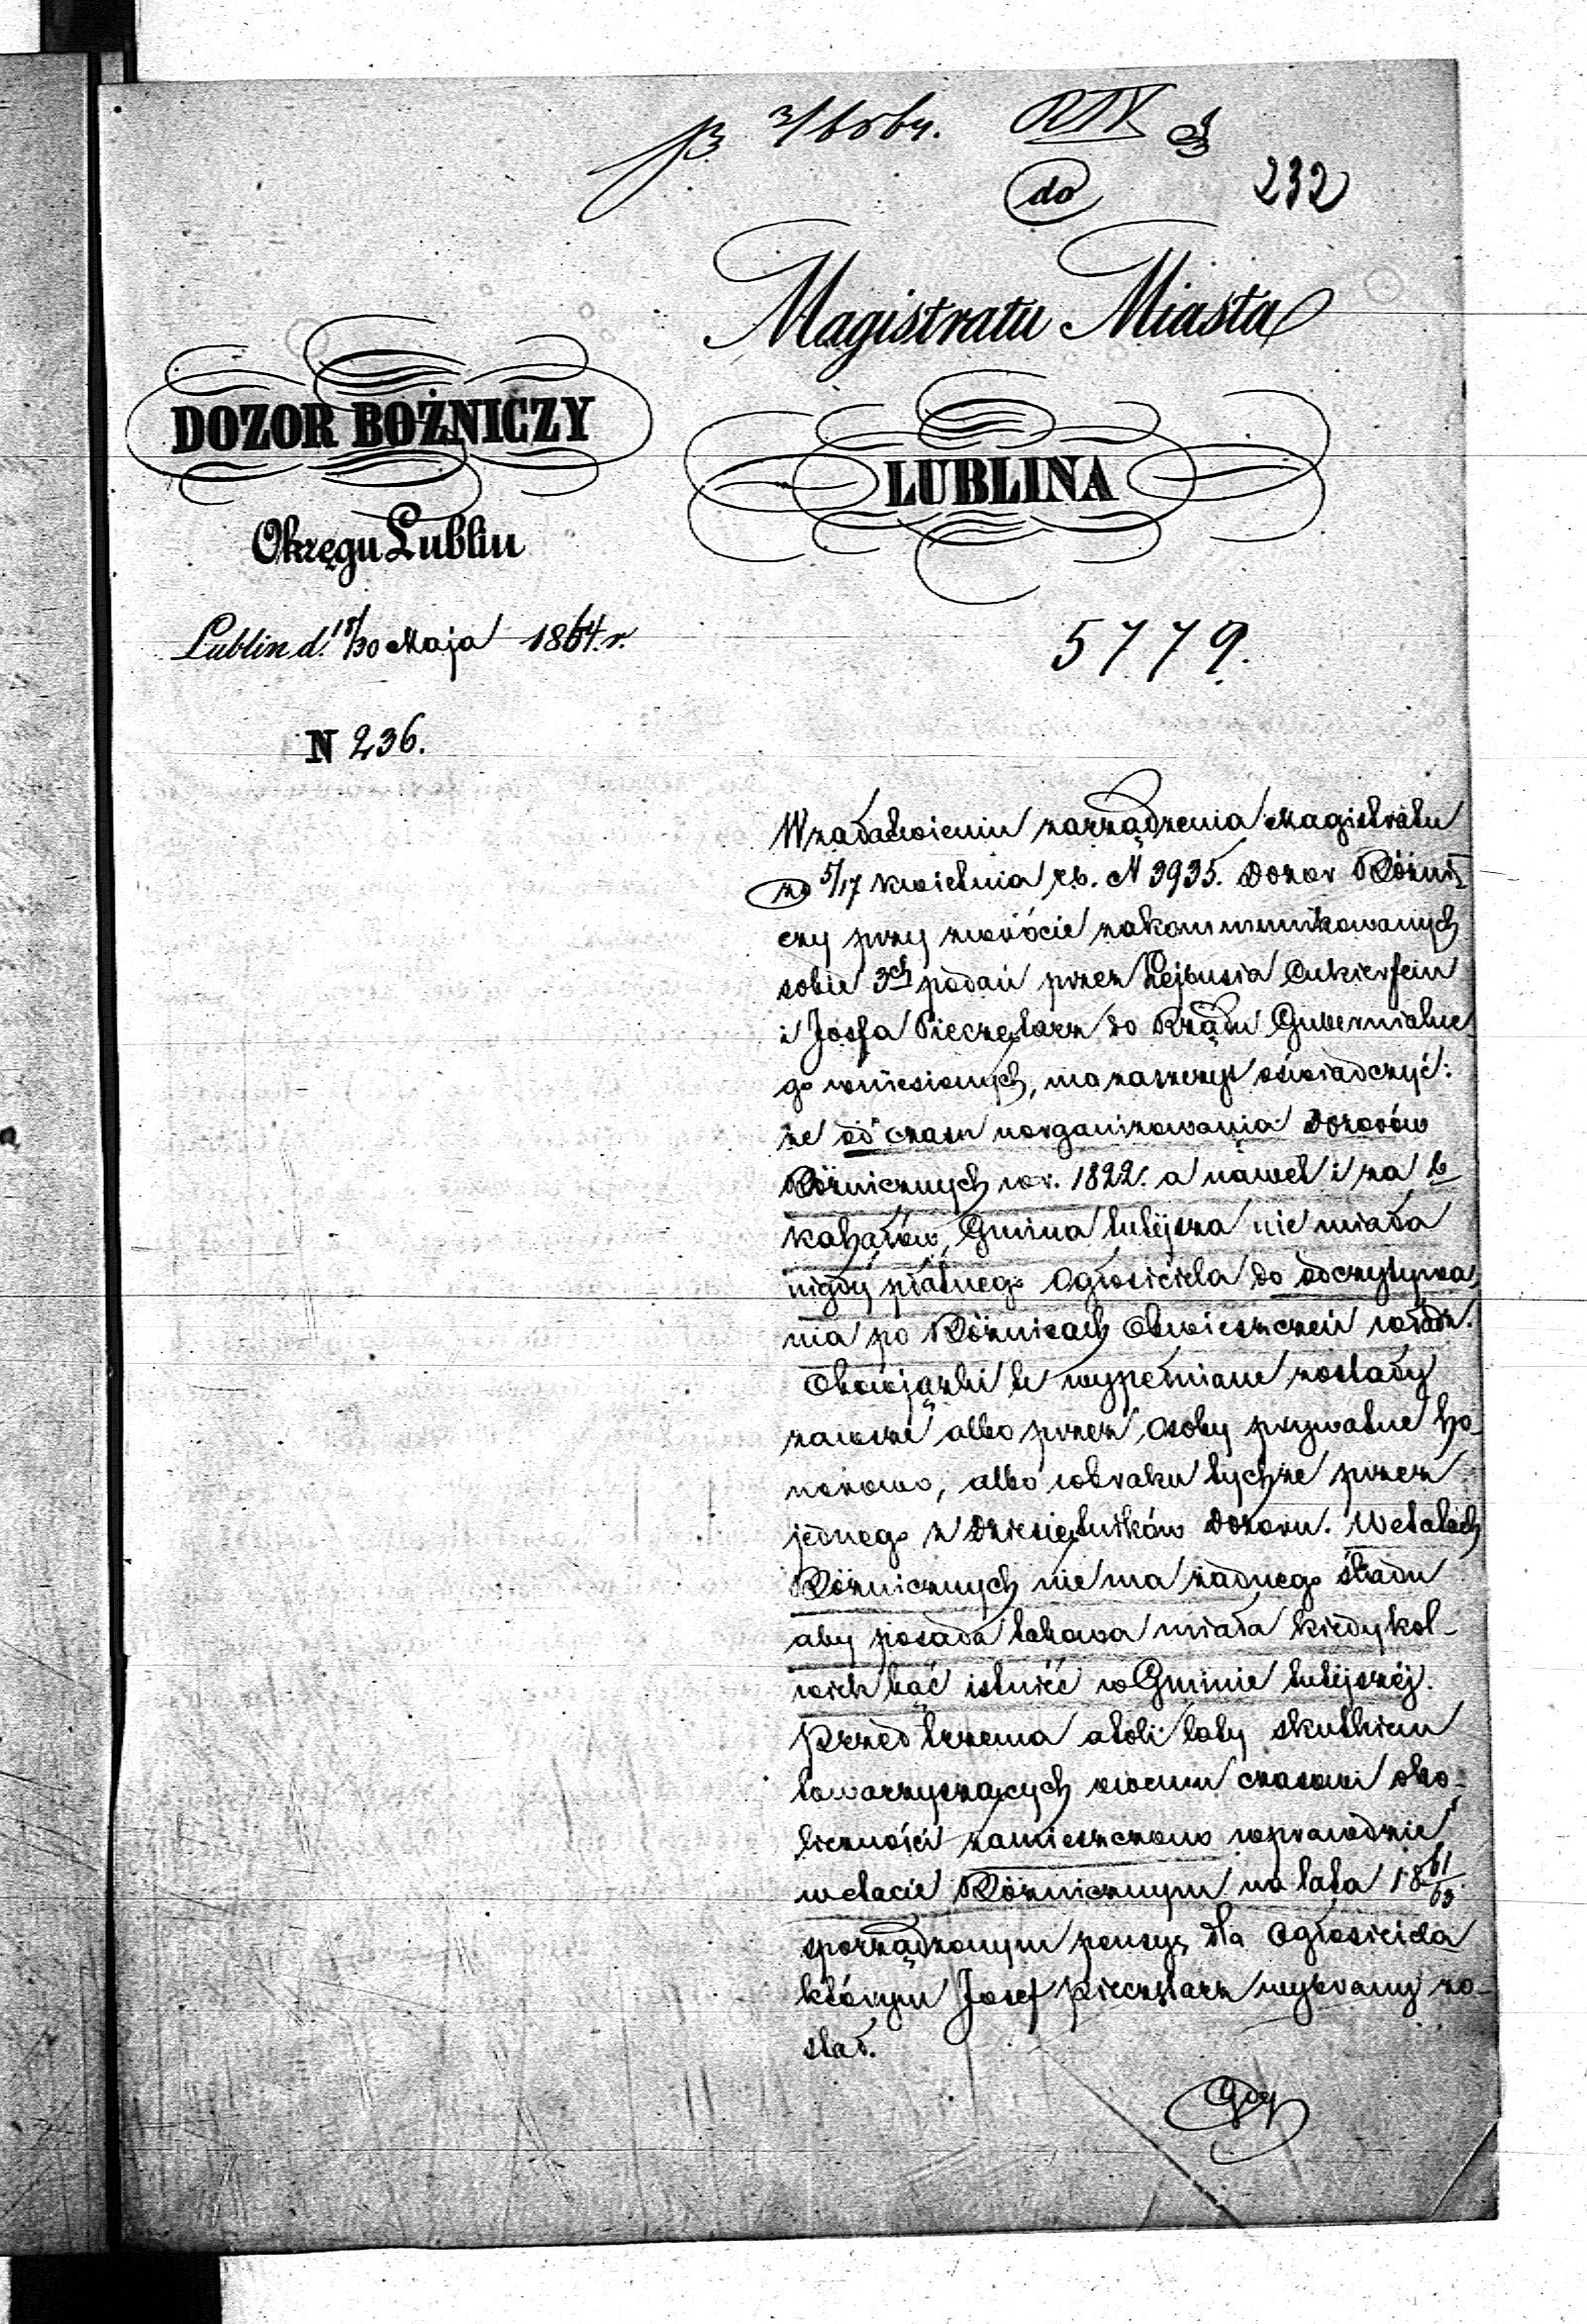 do
232
Magistratu Miasta
LUBLINA
DOZOR BOŻNICZY
Okręgu Lublin
Lublin d. 18/30 Maja 1864. r.
5779.
N 236.
W załatwieniu zarządzenia Magistratu
z d 5/17 Kwietnia r.b. N 3935. Dozor Bóżni-
czy przy zwrócie zakommunikowanych
sobie 3ch podań przez Lejbusia Cukierfein
i Josfa Pieczętarz do Rządu Gubernialne
go wniesionych, ma zaszczyt oświadczyć:
że od czasu uorganizowania Dozorów
Bóżnicznych w r. 1822. a nawet i za
Kahałów, Gmina tutéjsza nie miała
nigdy płatnego Ogłosiciela do odczytywa
nia po Bóżnicach Obwieszczeń władz.
Obowiązki te wypełniane zostały
zawsze albo przez Osoby prywatne ho-
norowo, albo w braku tychże przez
jednego z Dziesiętników Dozoru. W etatach
Bóżnicznych nie ma żadnego śladu
aby posada takowa miała kiedykol-
wiek bąć istnieć w Gminie tutéjszéj.
Przed trzema atoli laty skutkiem
towarzyszących owemu czasowi oko-
liczności zamieszczono wprawdzie
w etacie Bóżnicznym na lata 1861/63
sporządzonym pensyę dla Ogłosiciela
którym Josef Pieczętarz wybrany zo-
stał.